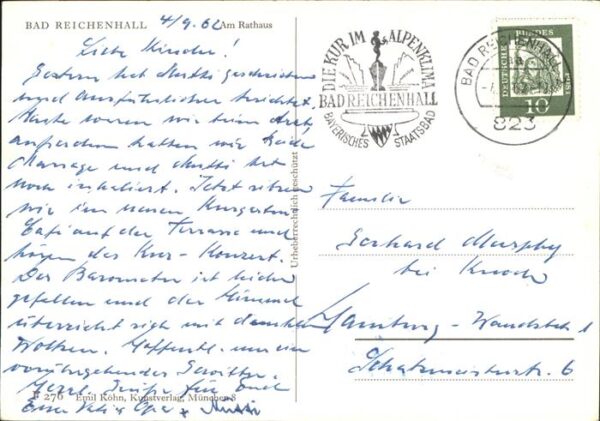 BAD REICHENHALL 4/9.62 Am Rathaus
Liebe Kinder!
Gestern hat Mutti geschrieben
und ausführlicher berichtet.
Heute waren wir beim Arzt,
außerdem hatten wir beide
Massage und Mutti hat
noch inhaliert. Jetzt sitzen
wir im neuen Kurgarten
Café auf der Terrasse und
hören das Kur-Konzert.
Das Barometer ist leider
gefallen und der Himmel
überzieht sich mit dunklen
Wolken. Hoffentl. nur ein
vorübergehender Gewitter.
Herzl. Grüße für Euch
Euer Vati + Opa + Mutti
F 276 Emil Köhn, Kunstverlag, München 8
Urheberrechtlich geschützt
DIE KUR IM ALPENKLIMA
BAD REICHENHALL
BAYERISCHES STAATSBAD
BAD REICHENHALL
823
DEUTSCHE BUNDESPOST
10
Familie
Gerhard Murphy
bei Knoch
Hamburg-Wandsbek 1
Schatzmeisterstr. 6